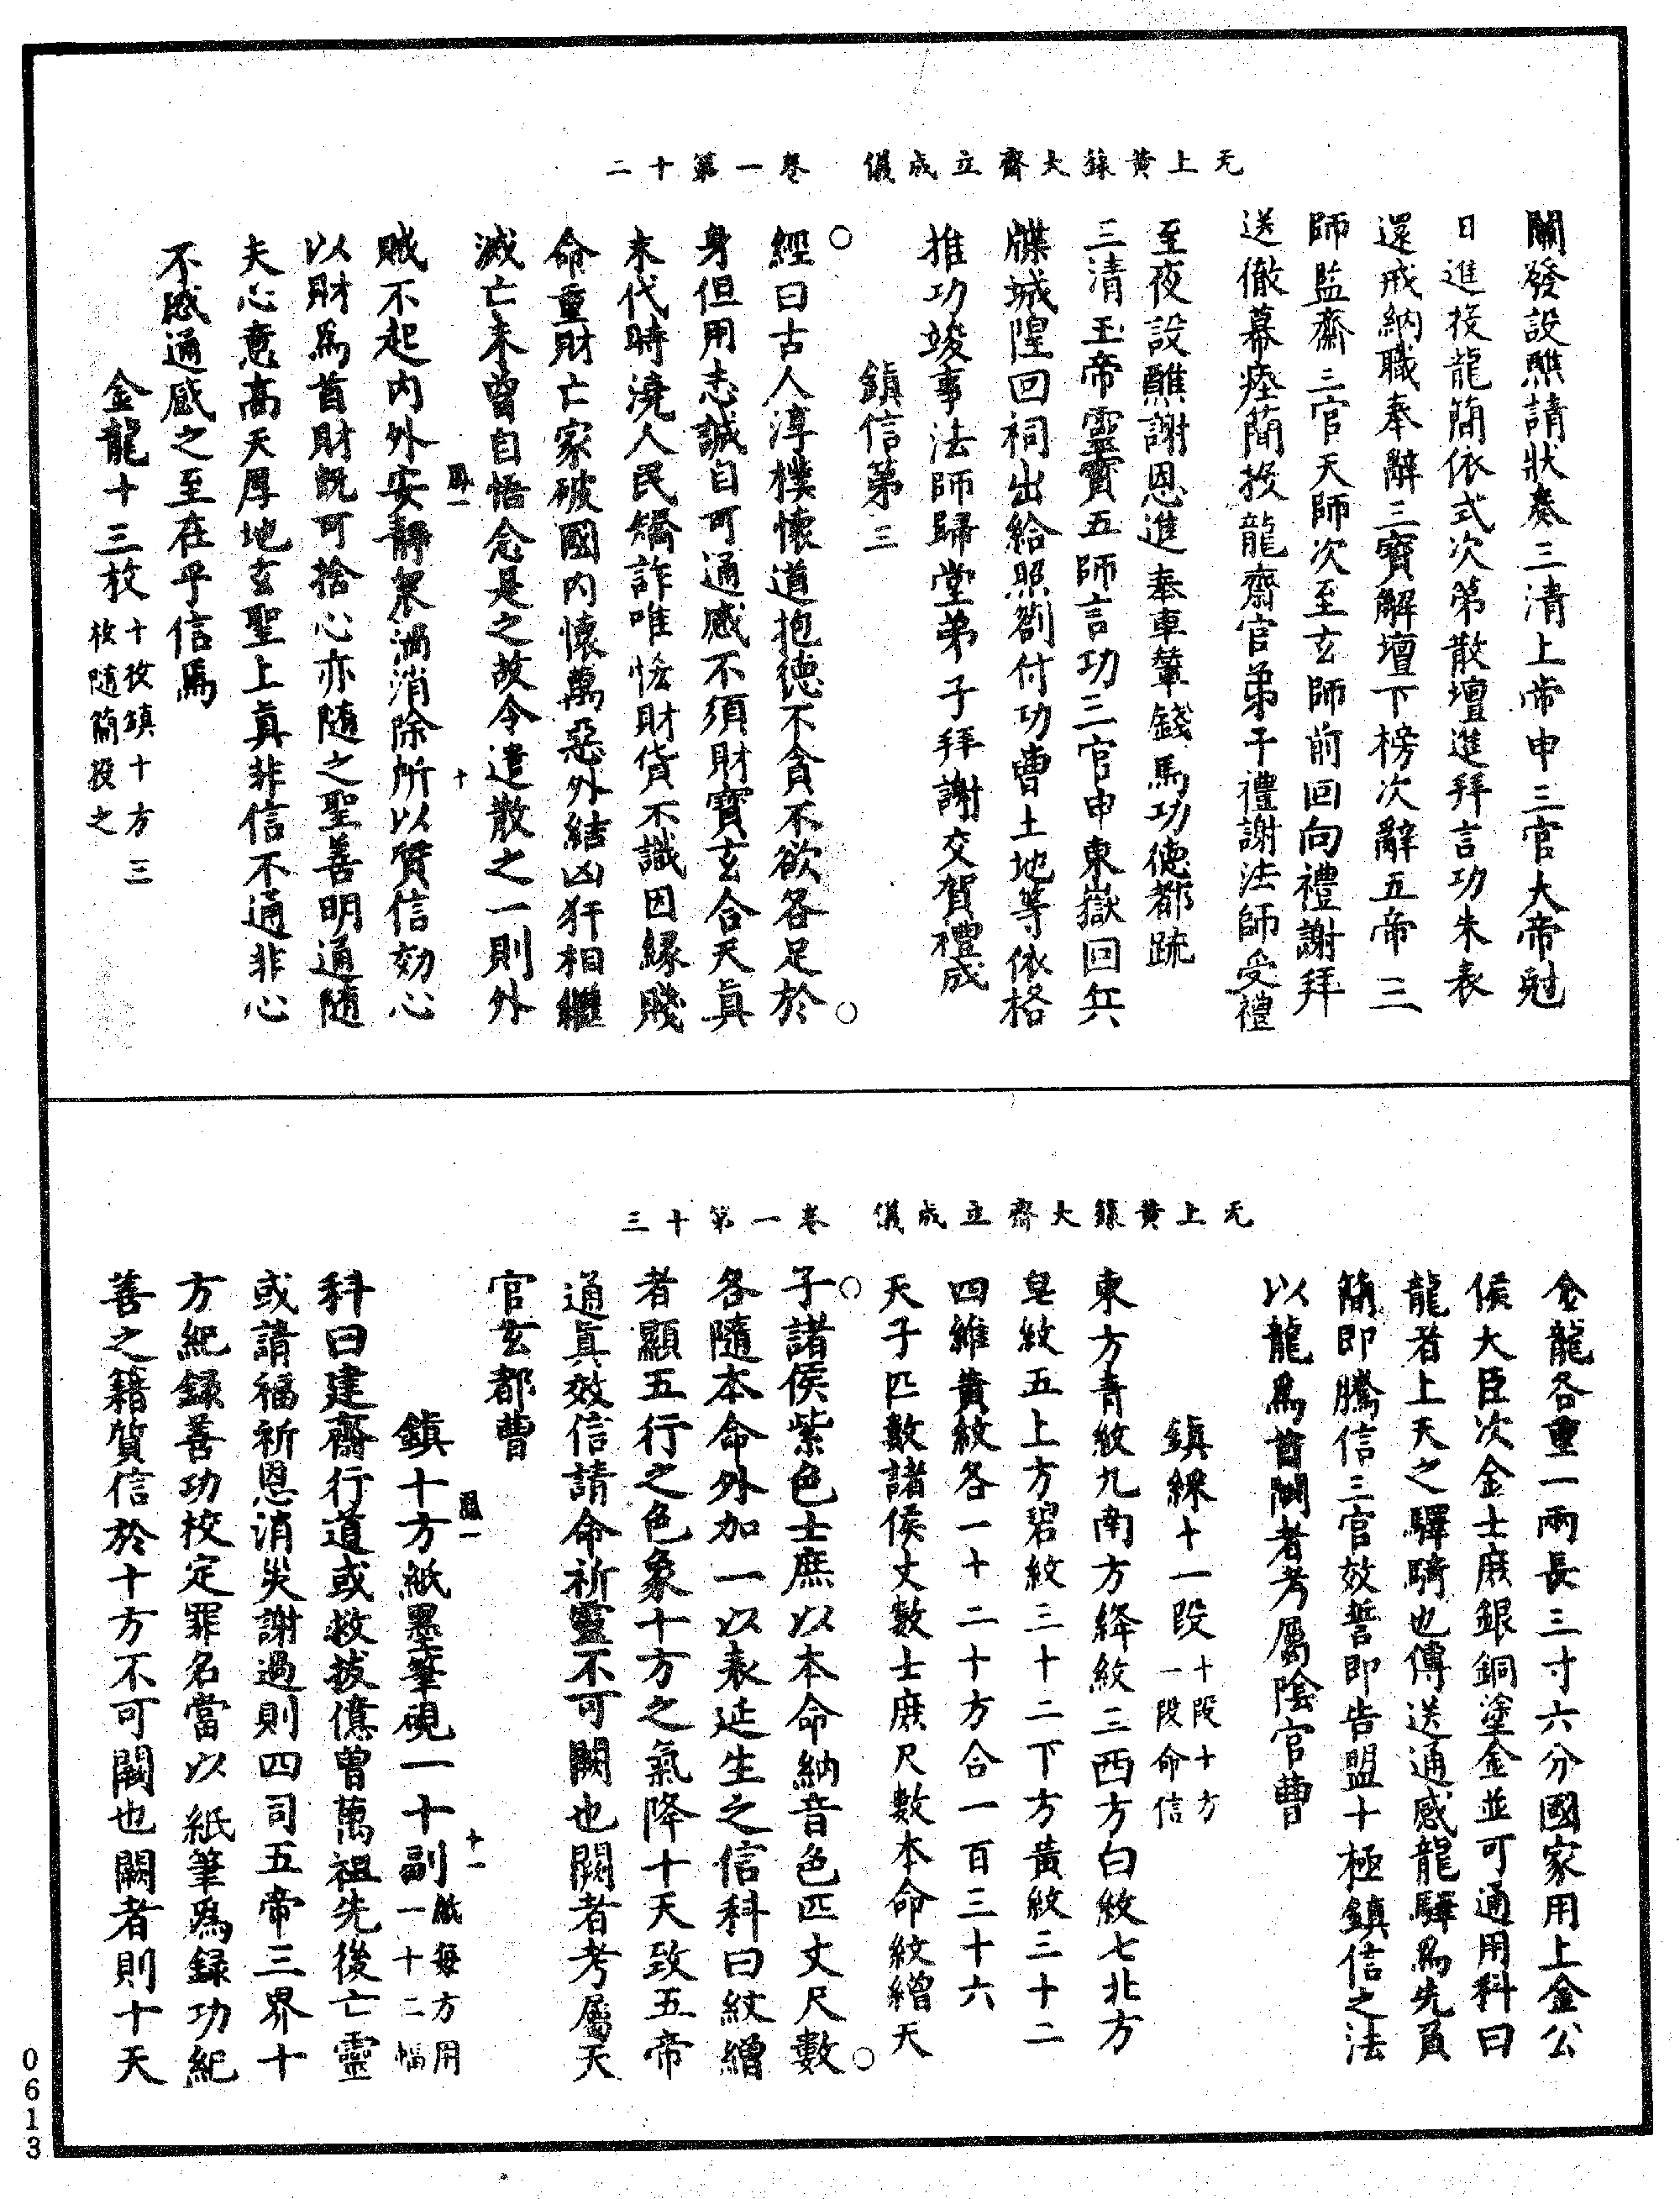 无上黃籙大齋立成儀 卷一第十二
關發設醮請狀奏三清上帝申三官大帝尅
日進投龍簡依式次第散壇進拜言功朱表
還戒納職奉辭三寶解壇下榜次辭五帝三
師監齋三官天師次至玄師前回向禮謝拜
送徹幕瘞簡投龍齋官弟子禮謝法師受禮
至夜設醮謝恩進奉車輦錢馬功德都疏
三清玉帝靈寶五師言功三官申東嶽回兵
牒城隍回祠出給照劄付功曹土地等依格
推功竣事法師歸堂弟子拜謝交賀禮成
鎮信第三
經曰古人淳樸懷道抱德不貪不欲各足於
身但用志誠自可通感不須財寶玄合天真
末代時澆人民矯詐唯悋財貨不識因緣賤
命重財亡家破國內懷萬惡外結凶犴相繼
滅亡未曾自悟念是之故令遣散之一則外
賊不起內外安靜眾禍消除所以質信効心
以財為首財既可捨心亦隨之聖善明通隨
夫心意高天厚地玄聖上真非信不通非心
不感通感之至在乎信焉
金龍十三枚十枚鎮十方三
枚隨簡投之
无上黃籙大齋立成儀 卷一第十三
金龍各重一兩長三寸六分國家用上金公
侯大臣次金士庶銀銅塗金並可通用科曰
龍者上天之驛騎也傳送通感龍驛為先負
簡即騰信三官效誓即告盟十極鎮信之法
以龍為首闕者考屬陰官曹
鎮綵十一段十段十方
一段命信
東方青紋九南方絳紋三西方白紋七北方
皂紋五上方碧紋三十二下方黃紋三十二
四維黃紋各一十二十方合一百三十六
天子匹數諸侯丈數士庶尺數本命紋繒天
子諸侯紫色士庶以本命納音色匹丈尺數
各隨本命外加一以表延生之信科曰紋繒
者顯五行之色象十方之氣降十天致五帝
通真效信請命祈靈不可闕也闕者考屬天
官玄都曹
鎮十方紙墨筆硯一十副紙每方用
一十二幅
科曰建齋行道或救拔億曾萬祖先後亡靈
或請福祈恩消災謝過則四司五帝三界十
方紀錄善功校定罪名當以紙筆為錄功紀
善之籍質信於十方不可闕也闕者則十天
0613